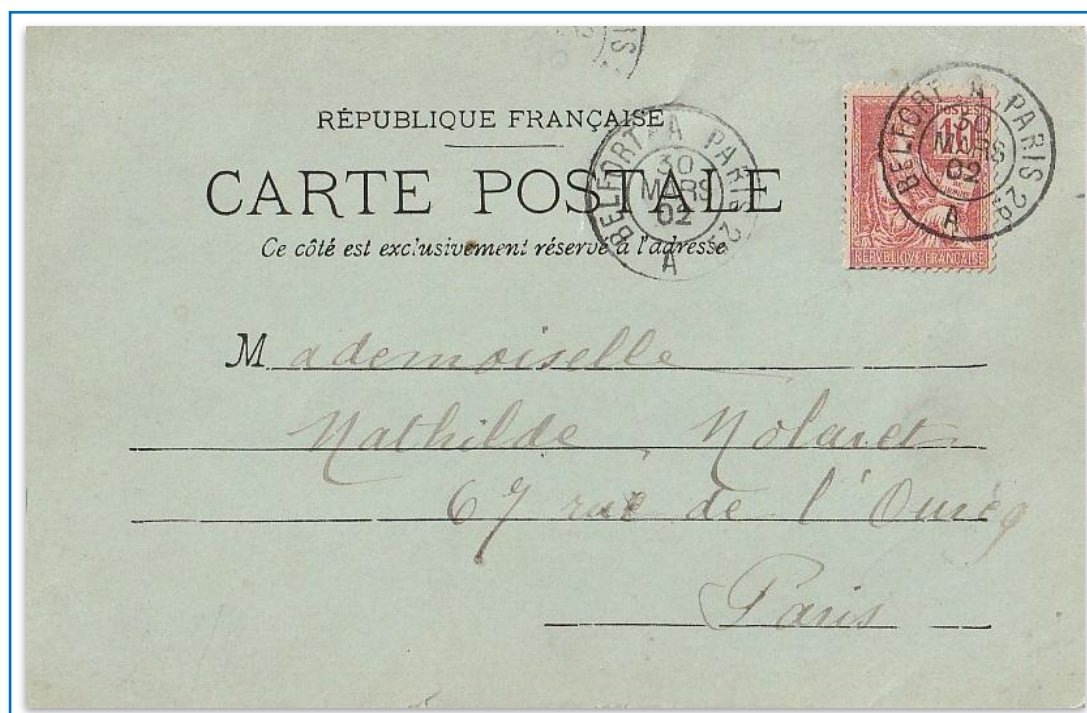 IS
RÉPUBLIQUE FRANÇAISE
CARTE POSTALE
Ce côté est exclusivement réservé à l'adresse
BELFORT A PARIS 2°
30
MARS
02
A
POSTES
10
REPVBLIQVE FRANÇAISE
BELFORT A PARIS 2°
30
MARS
02
A
Mademoiselle
Mathilde Nolaret
67 rue de l'Ourcq
Paris